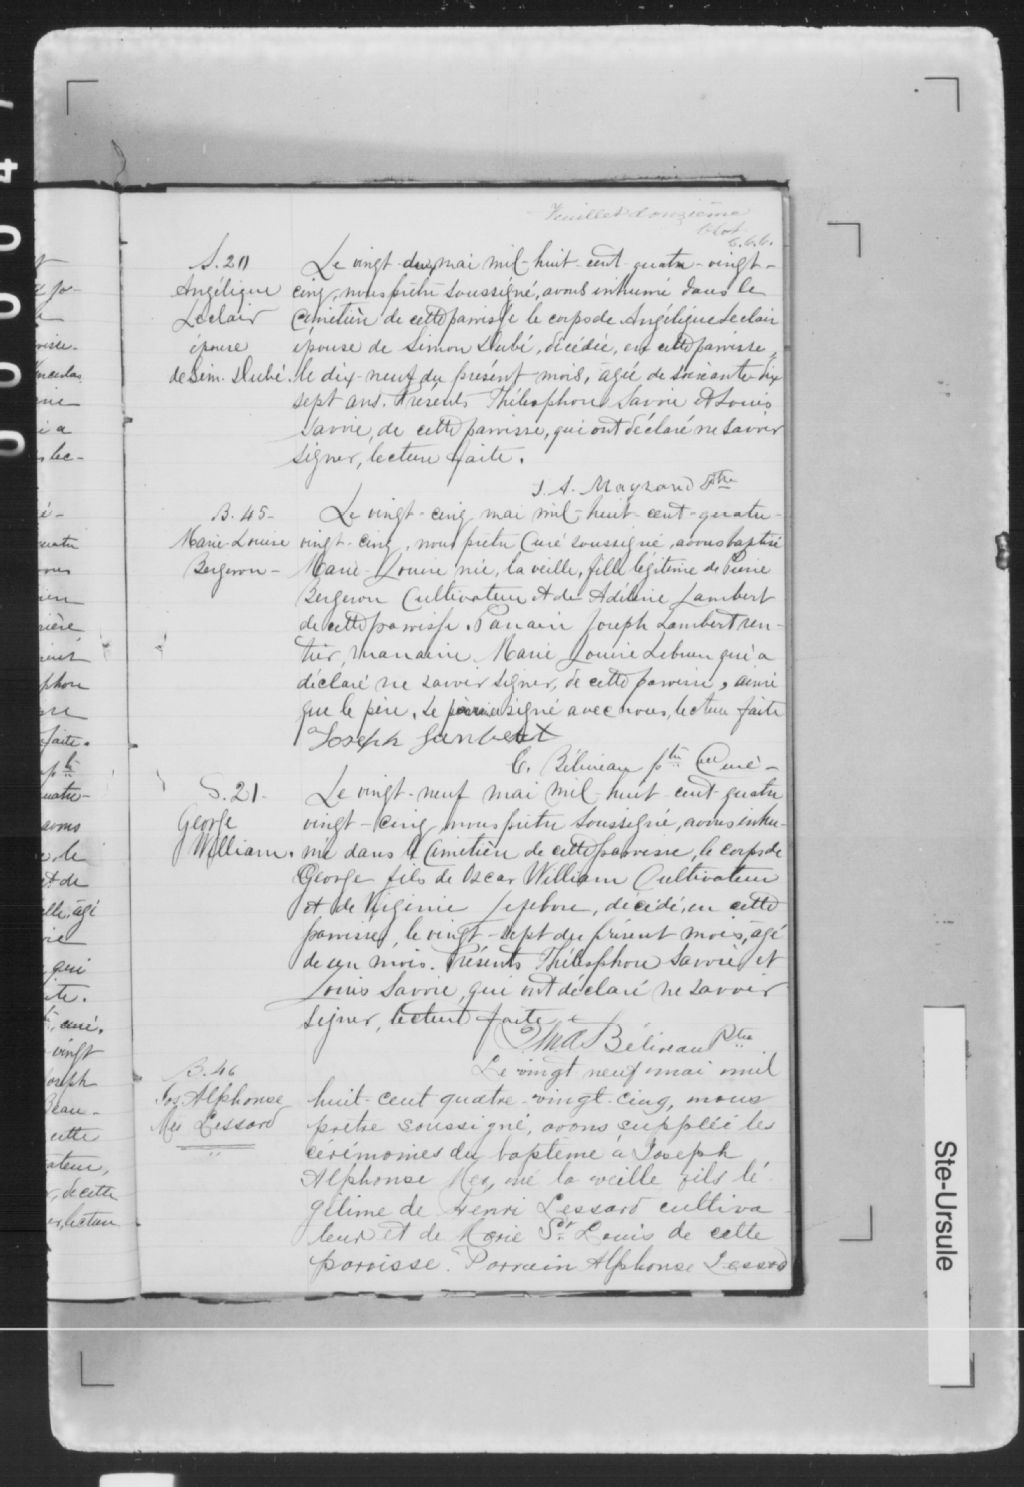 Feuillet douzième
C.S.C.
S. 20
Angélique
Leclair
épouse
de Sim. Dubé
Le vingt-deux mai mil-huit-cent-quatre-vingt-
cinq, nous prêtre soussigné, avons inhumé dans le
Cimetière de cette paroisse le corps de Angélique Leclair
épouse de Simon Dubé, décédée, en cette paroisse,
le dix-neuf du présent mois, agée de soixante-dix
sept ans. Présents Thélesphore Savoie et Louis
Savoie, de cette paroisse, qui ont déclaré ne savoir
signer, lecture faite.
J. A. Mayrand Ptre
B. 45-
Marie-Louise
Bergeron-
Le vingt-cinq mai mil-huit-cent-quatre-
vingt-cinq, nous prêtre Curé soussigné, avons baptisé
Marie-Louise née, la veille, fille légitime de Pierre
Bergeron Cultivateur et de Adeline Lambert
de cette paroisse. Parrain Joseph Lambert ren-
tier, marraine Marie Louise Lebrun qui a
déclaré ne savoir signer, de cette paroisse, ainsi
que le père. Le parrain signé avec nous, lecture faite
Joseph Lambert
C. Béliveau ptre Curé-
S. 21-
George
William.
Le vingt-neuf mai mil-huit-cent-quatre
vingt-cinq, nous prêtre soussigné, avons inhu-
mé dans le Cimetière de cette paroisse, le corps de
George fils de Oscar William Cultivateur
et de Virginie Lefebvre, décédé, en cette
paroisse, le vingt-sept du présent mois, agé
de un mois. Présents Thélesphore Savoie et
Louis Savoie, qui ont déclaré ne savoir
signer, lecture faite.
Béliveau Ptre
B. 46
Jos. Alphonse
Lessard
Le vingt neuf mai mil
huit-cent quatre-vingt-cinq, nous
prêtre soussigné, avons suppléé les
cérémonies du baptême à Joseph
Alphonse né la veille fils lé-
gitime de Henri Lessard cultiva-
teur et de Marie St Louis de cette
paroisse. Parrain Alphonse Lessard
Ste-Ursule